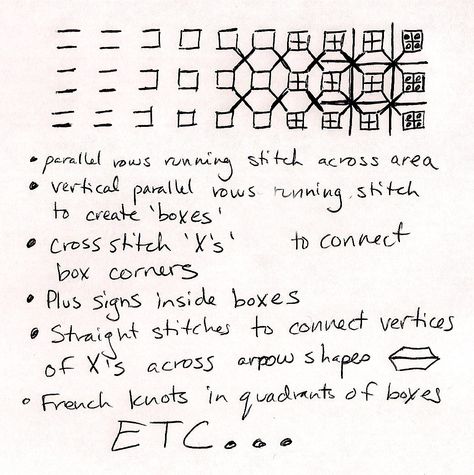 • parallel rows running stitch across area
• vertical parallel rows running stitch
to create 'boxes'
• cross stitch 'X's' to connect
box corners
• Plus signs inside boxes
• Straight stitches to connect vertices
of X's across arrow shapes
• French knots in quadrants of boxes
ETC...